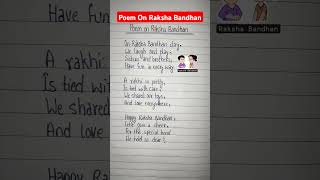 Poem On Raksha Bandhan
Have fun in
Poem on Raksha Bandhan
On Raksha Bandhan day,
We laugh and play,
Sisters and brothers,
Have fun in every way.
Raksha Bandhan
A rakhi so pretty,
Is tied with care,
We shared our toys,
And love everywhere.
Happy Raksha Bandhan,
Let's give a cheer,
For this special bond
We hold so dear!
A rakhi
Is tied
We shared
And love
Happy Ra
ys,
where.
ndhan,